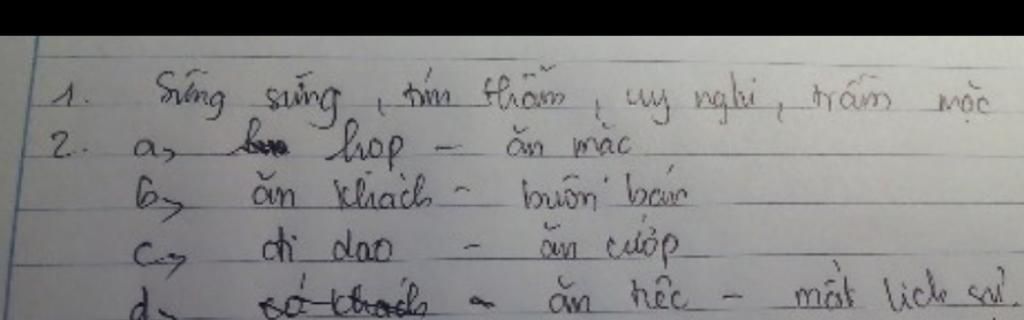 1. Sừng sững, tím thẫm, uy nghi, trầm mặc
2. a, họp - ăn mặc
b, ăn khách - buôn bán
c, đi dạo - ăn cướp
d, ăn tiệc - mất lịch sự.